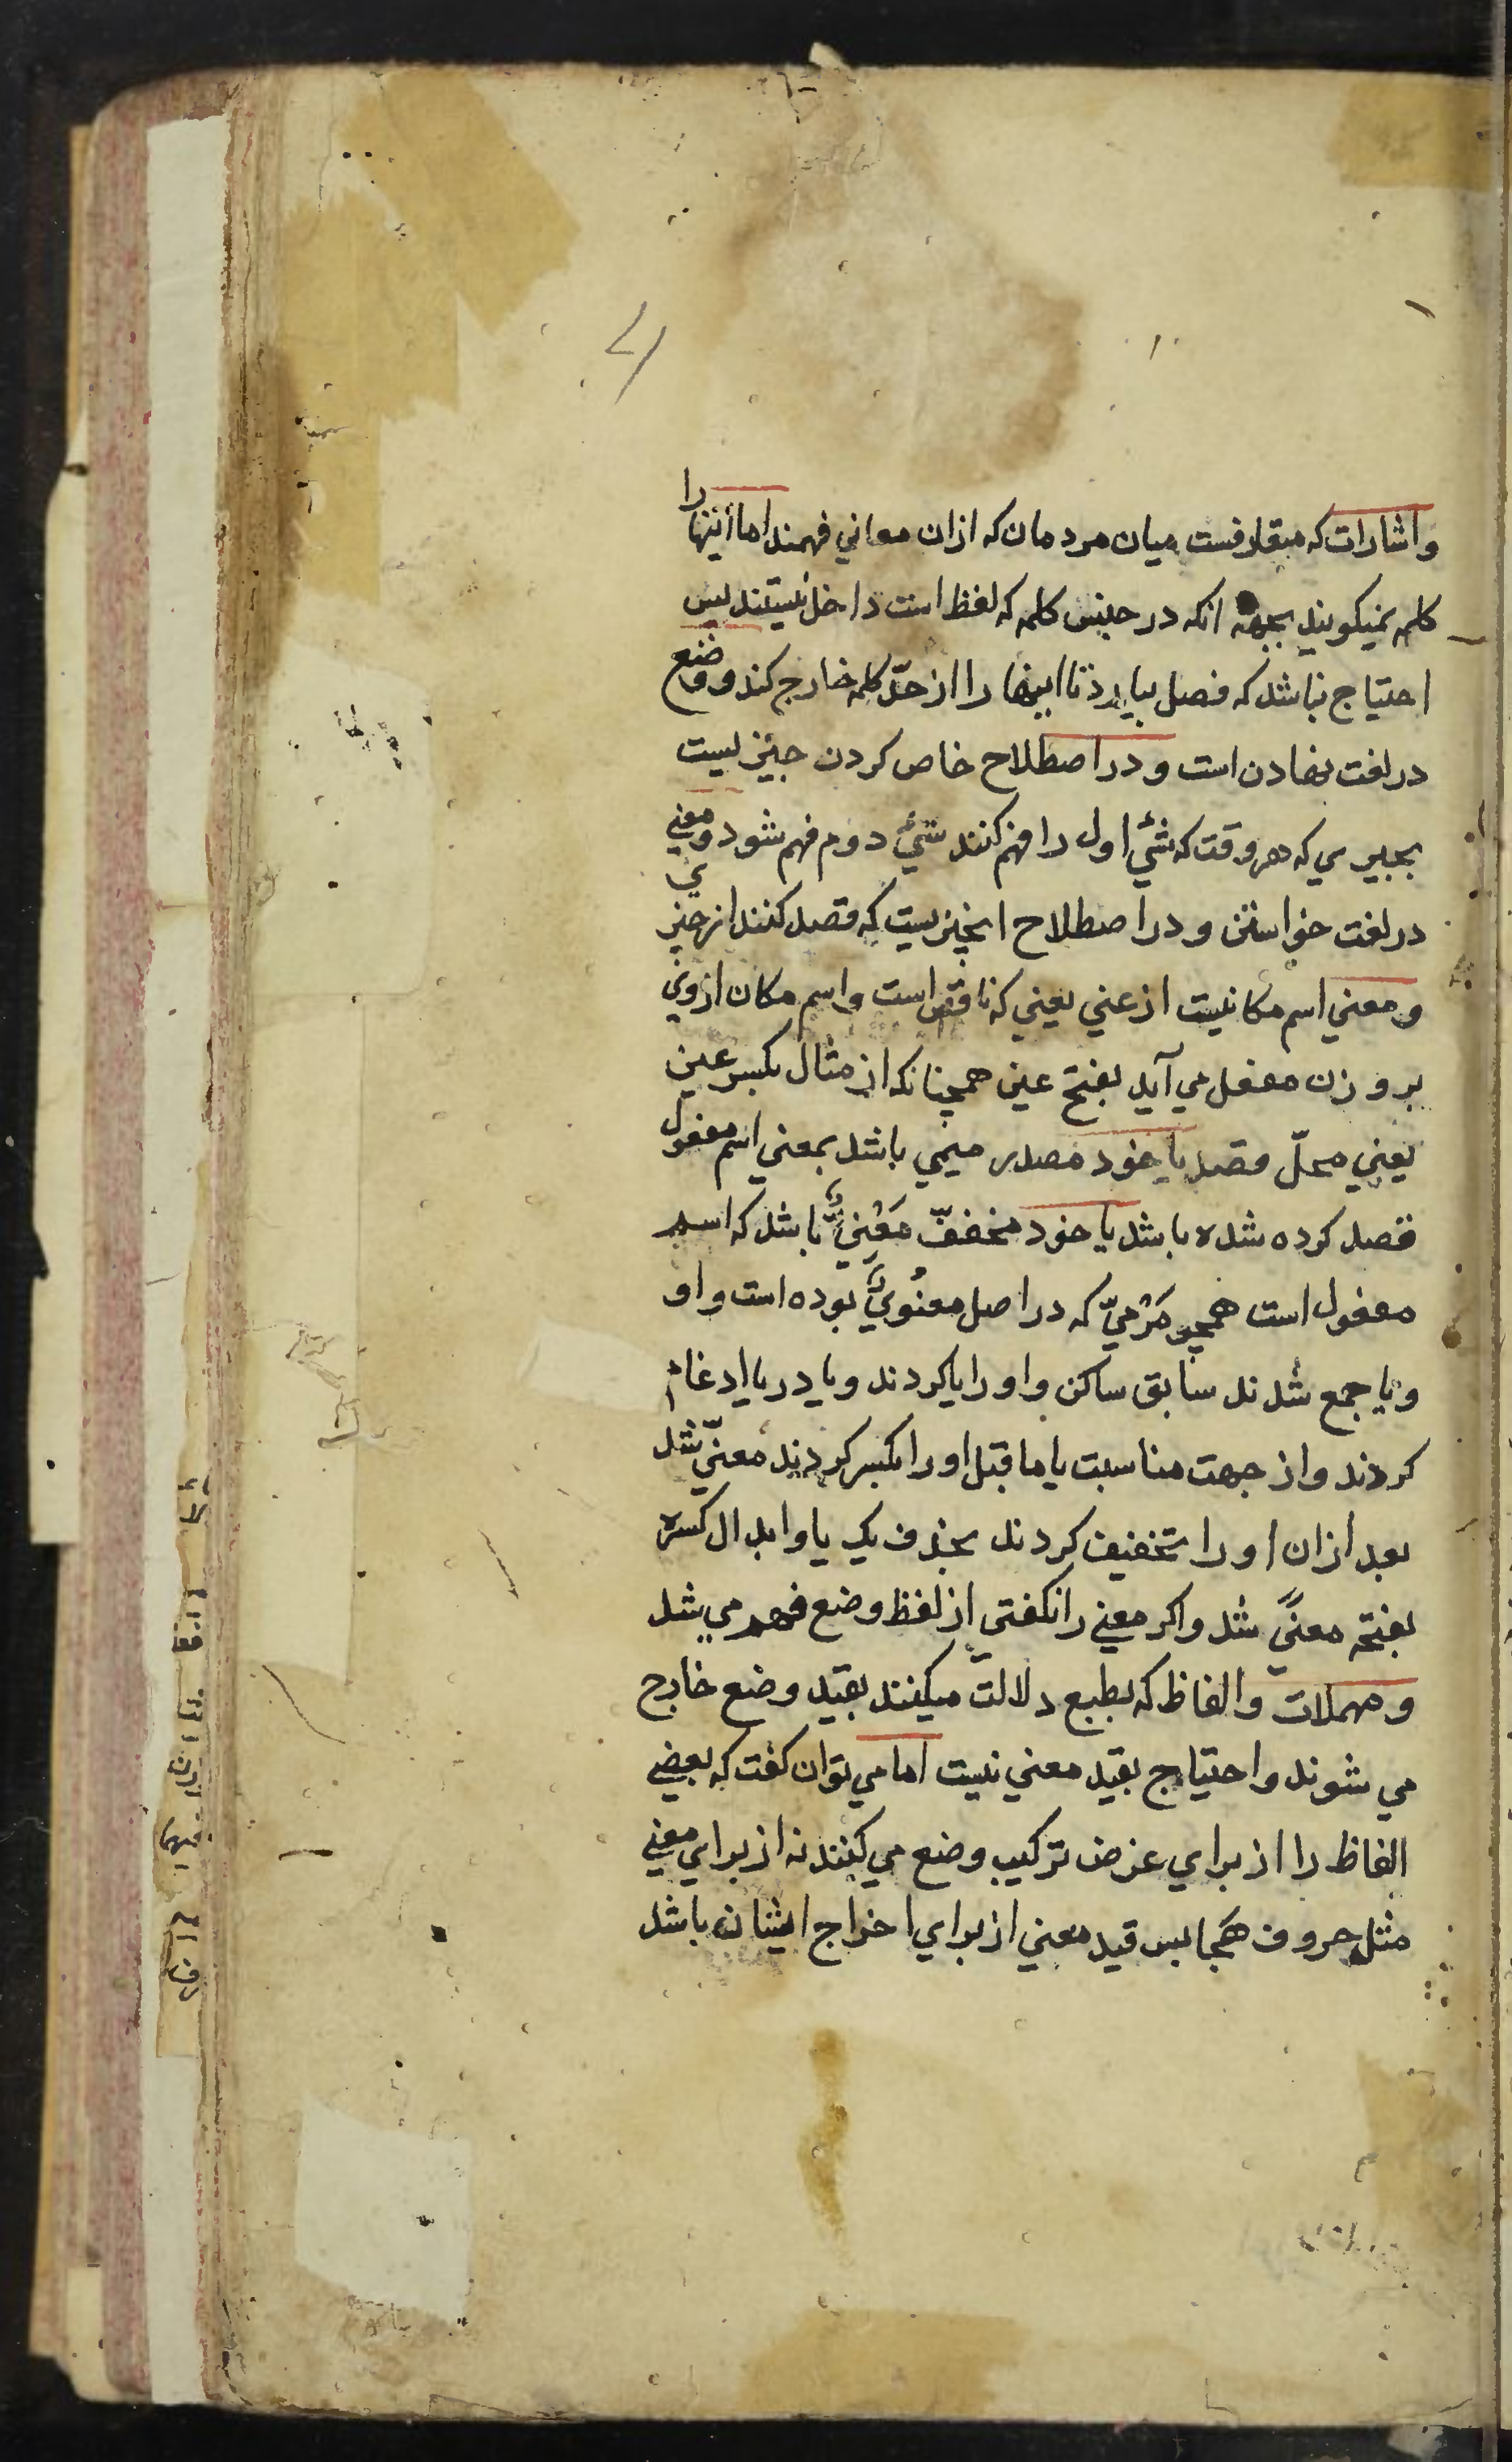 واشارات که متعارفست میان مردمان که ازان معاني فهمند اما اینها را
کلمه نمیکویند بجهة انکه در جنس کلمه که لفظ است داخل نیستند پس
احتیاج نباشد که فصل بیارد تا اینها را از حدّ کلمه خارج کند و وضع
در لغت نهادن است و در اصطلاح خاص کردن چیزیست
بچیزی که هر وقت که شئ اول را فهم کنند شئ دوم فهم شود و معني
در لغت خواستن و در اصطلاح انچیزیست که قصد کنند از چیزي
و معني اسم مکانیست از عني یعني که ناقص است و اسم مکان ازوي
بر وزن مفعل مي آید بفتح عین همچنانکه از مثال بکسر عین
یعني محلّ قصد یا خود مصدر میمي باشد بمعني اسم مفعول
قصد کرده شده باشد یا خود مخففّ مَعْنِيٌّ باشد که اسم
مفعول است همچو مَرْمِيّ که در اصل معنُويٌ بوده است واو
و یا جمع شدند سابق ساکن واو را یا کردند و یا در یا ادغام
کردند و از جهت مناسبت یا ما قبل او را بکسر کردند معنيّ شد
بعد ازان او را تخفیف کردند بحذف یک یا و ابدال کسره
بفتحه معنيً شد و اکر معني را نکفتي از لفظ وضع فهم مي شد
و مهملات و الفاظ که بطبع دلالت میکنند بقید وضع خارج
مي شوند و احتیاج بقید معني نیست اما مي توان کفت که بعضي
الفاظ را از براي غرض ترکیب وضع مي کنند نه از براي معني
مثل حروف هجا پس قید معني از براي اخراج ایشان باشد